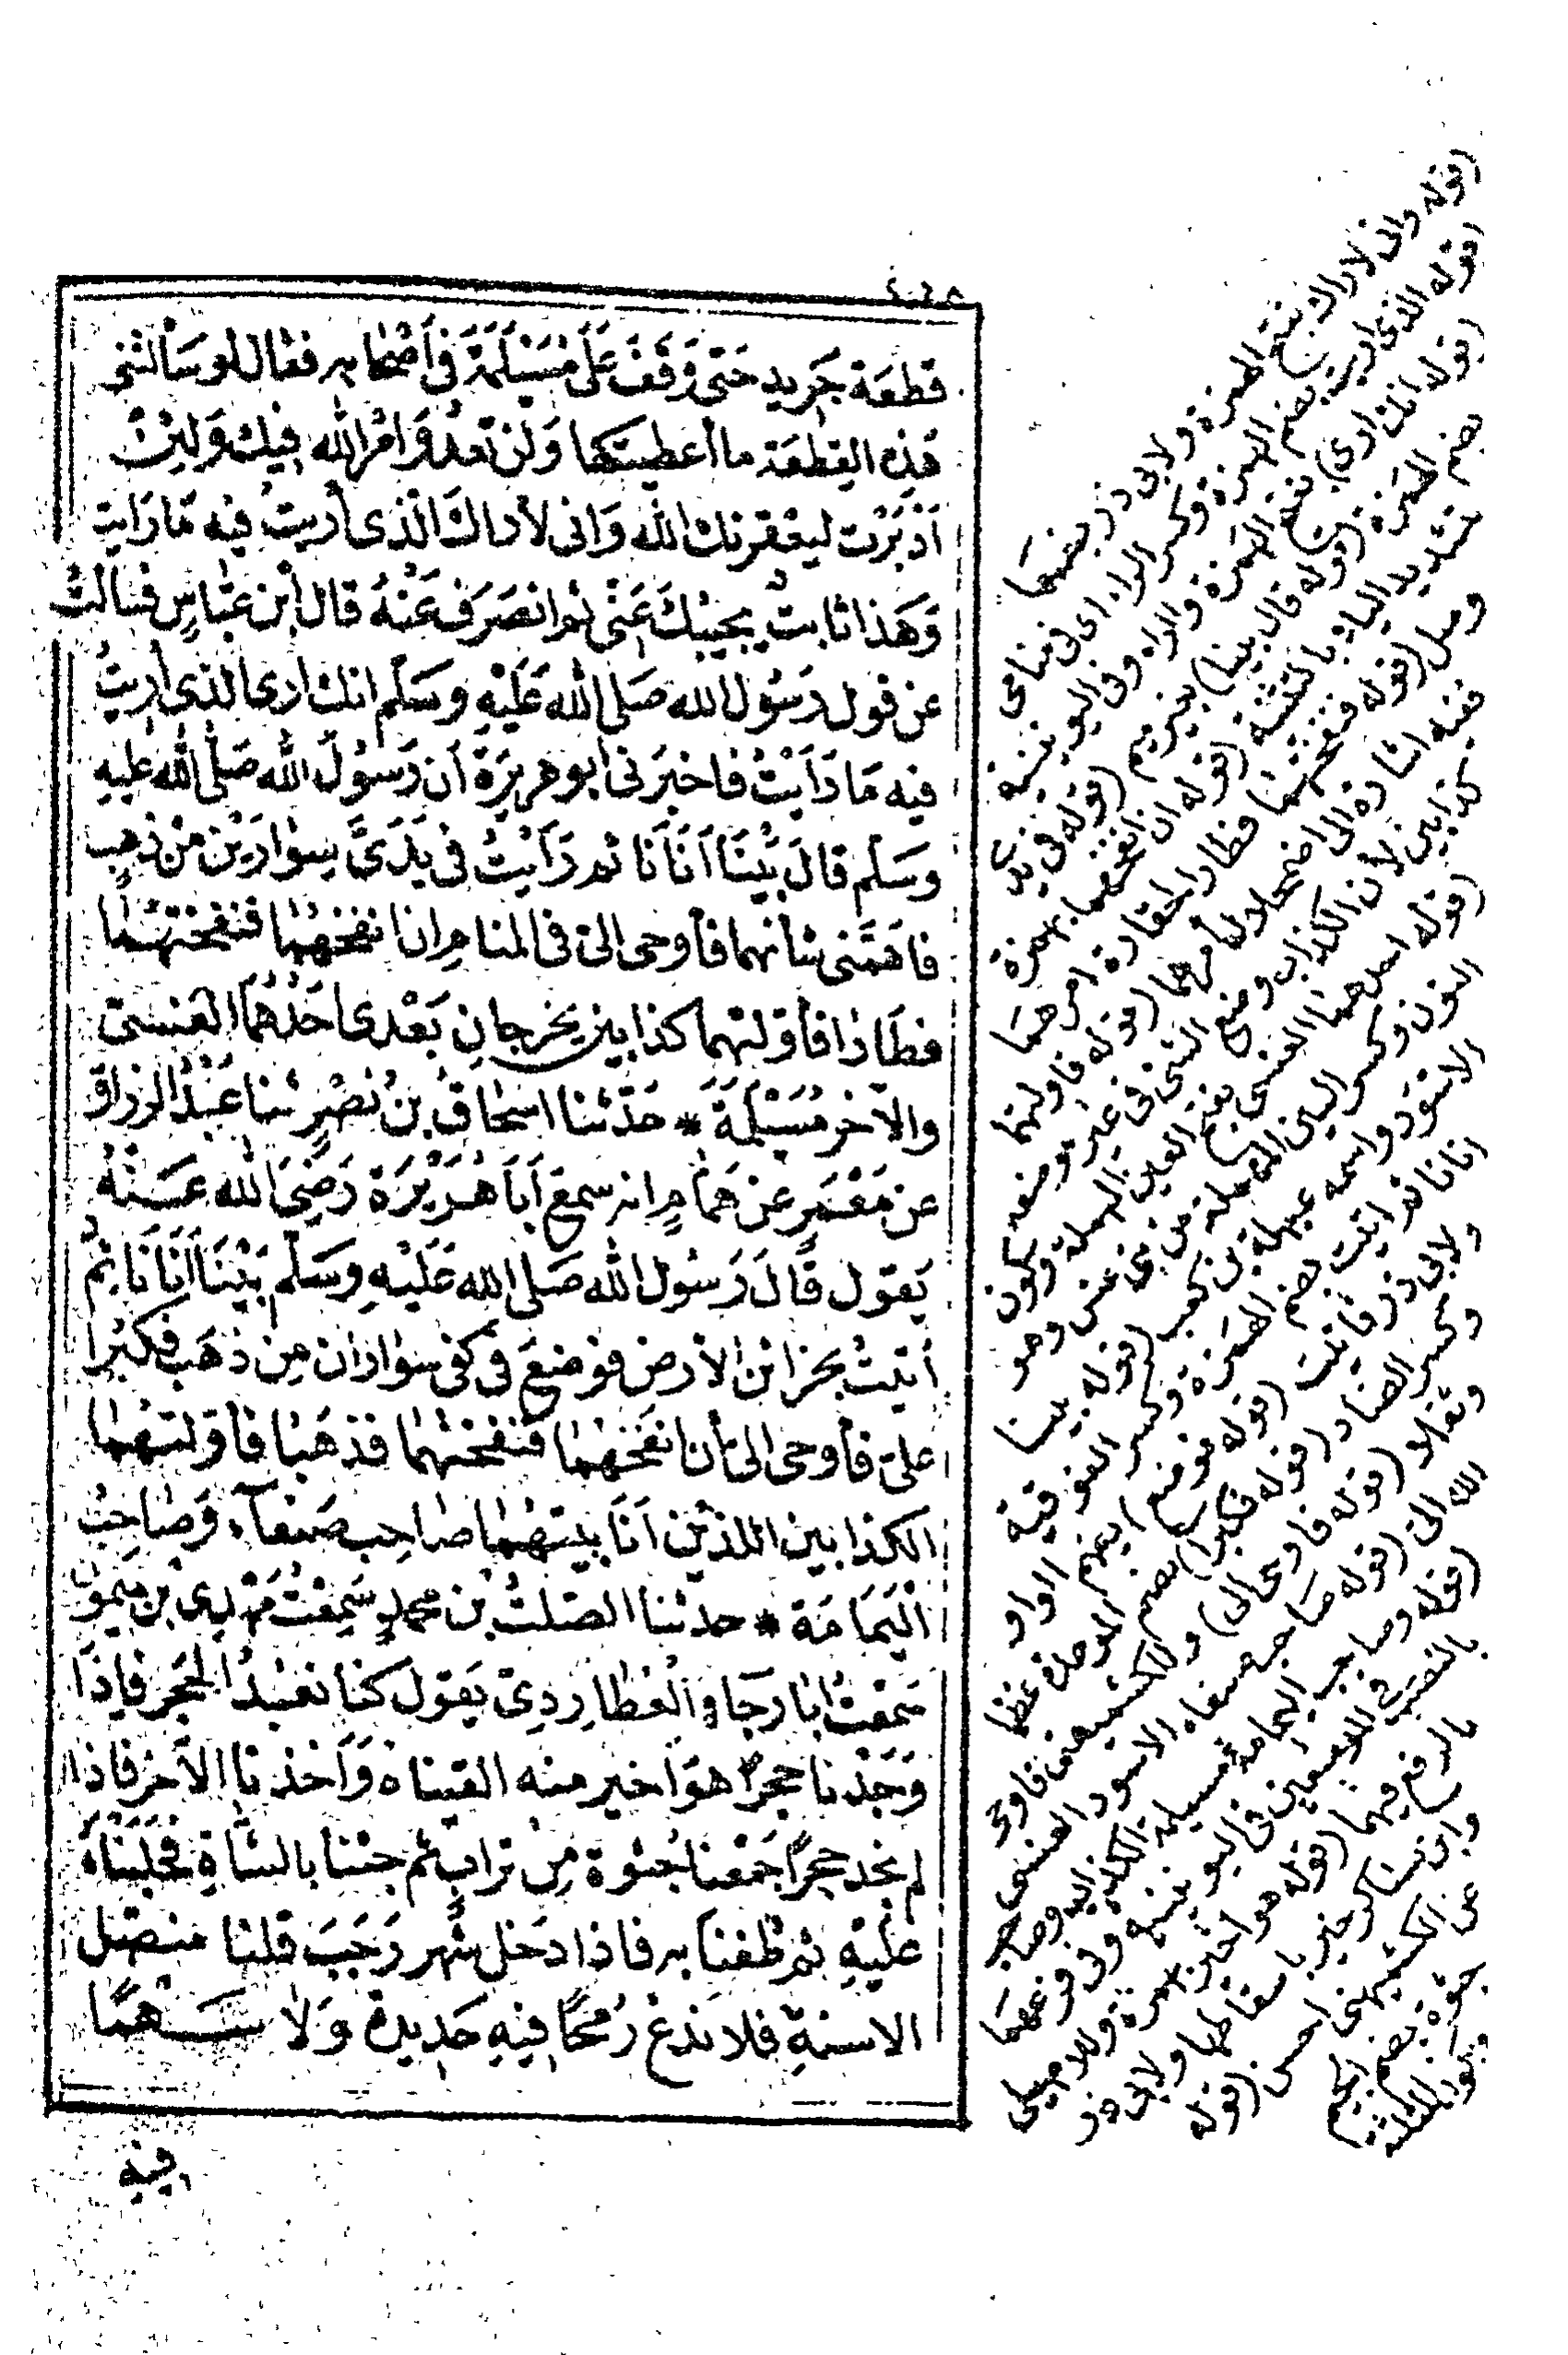 ٤٠٨
قطعَة جَريدٍ حَتى وَقَفَ عَلَى مُسَيْلَمَةَ فى أَصْحَابِهِ فقال لو سَألتنى
هَذِهِ القِطعَة ما أعطيتكها وَلَنْ تَعْدُوَ امْرَ الله فِيكَ وَلئِنْ
اَدْبَرْت ليعْقرنك الله وَانى لأراك الَّذى أُرِيتُ فيه مَا رَايت
وَهَذا ثابتٌ يجيبُكَ عَنّى ثم انصَرَف عَنْهُ قال ابْن عبّاسٍ فسالتُ
عن قول رَسُول الله صَلى الله عَلَيْهِ وسَلّم انك ارى الذى اُرِيتُ
فيه مَا رَاَيْتُ فاخبرَنى ابو هريرَة اَن رَسُولَ الله صَلّى الله عليهِ
وسَلّم قالَ بَيْنَا اَنَا نَائم رَاَيْتُ فى يَدَىَّ سِوَارَيْن من ذهبٍ
فاهَمَّنى شأنهما فأوحى الىّ فى المنام ان انفخهُمَا فنفختهُمَا
فطَارَا فأوّلتهما كذابَين يخرجانِ بَعْدى احَدُهُمَا العَنسىّ
والآخر مُسَيْلَمَةَ * حَدّثنا اسحاقُ بنُ نصْرٍ ثنا عَبْدُ الرزاق
عن مَعْمَرٍ عن هَمّامٍ انه سمع اَبَا هُرَيْرَة رَضِىَ الله عَنْهُ
يَقول قَالَ رَسُول الله صَلى الله عَلَيْهِ وسَلّم بَيْنَا اَنَا نَائمٌ
أُتيتُ بخزائن الأرض فوضِعَ فى كفى سوَاران مِن ذهَب فكبُرا
علىّ فأوحى الىّ أن انفخهُمَا فنفختهُمَا فذهَبَا فأوّلتهُمَا
الكذابين اللذَيْن اَنَا بينهُمَا صَاحِب صَنعَآءَ وَصَاحِبُ
الْيَمَامَة * حدثنا الصّلتُ بْن محمدٍ سَمِعْتُ مَهْدِى بن مَيمُون
سَمعتُ ابَا رَجَاءٍ الْعُطَارِدِىّ يَقول كنا نعْبُدُ الحَجَر فإذَا
وَجَدْنا حجرًا هوَ اَخير منه القيناهُ وَاَخذنا الآخر فاذا
لم نجد حجرًا جَمَعنا جُثوَة مِن تراب ثم جئنا بالشاةِ فحَلَبْنَاهُ
علَيْهِ ثم طُفنَا به فاذا دَخل شهر رَجَبَ قلنا منصِّل
الاسنةِ فلا نَدَع رُمحًا فِيهِ حَديدة وَلا سَهْمًا
فِيهِ
(قوله وانى لأراك) بفتح الهمزة ولابى ذر بضمها
(قوله الذى اريت) بضم الهمزة وكسر الراء اى فى منامى
(قوله انك ارى) بفتح الهمزة والراء وفى اليونينية
بضم الهمزة (قوله قال بينا) بغير ميم (قوله فى يدى)
بتشديد الياء بالتثنية (قوله ان انفخهما) بهمزة
وصل (قوله فنفختهما فطارا) لحقارة امرهما
ففيه اشارة الى اضمحلال امرهما (قوله فاولتهما
كذابين) لأن الكذاب وضع الشئ فى غير موضعه
(قوله احدهما العنسى) بفتح العين المهملة وسكون
النون وكسر السين المهملة من بنى عنس وهو
الاسود واسمه عبهلة بن كعب (قوله بينا
انا نائم اتيت) بضم الهمزة وكسر الفوقية
ولابى ذر فاتيت (قوله فوضع) بضم الواو
وكسر الضاد (قوله فكبرا) بضم الموحدة عظما
وثقلا (قوله فاوحى الى) وللكشميهنى فاوحى
الله الى (قوله صاحب صنعاء) الاسود العنسى
(قوله وصاحب اليمامة) مسيلمة الكذاب وصاحب
بالنصب فى الموضعين فى اليونينية وفى فرعها
بالرفع فيهما (قوله هو اخير) بهمزة وللاصيلى
وابن عساكر خير باسقاطها ولابى ذر
عن الكشميهنى احسن (قوله
جثوة) بضم الجيم
وسكون المثلثة